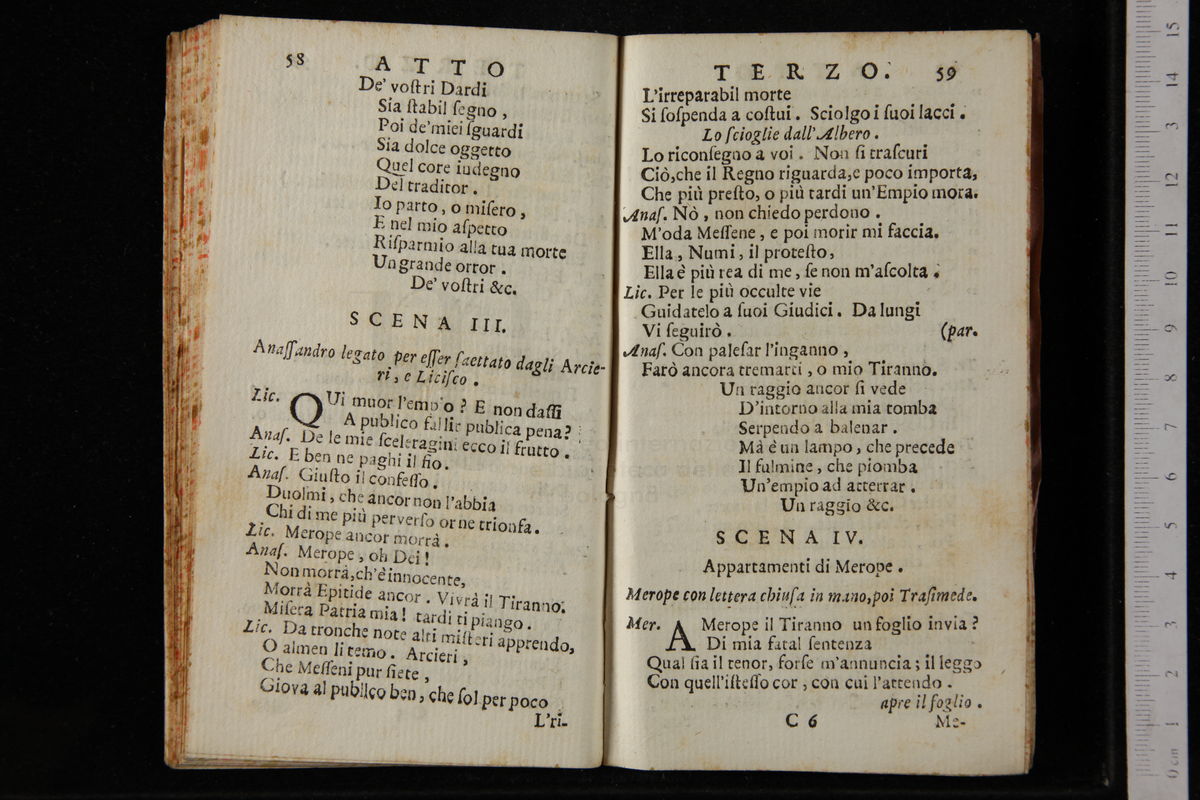 58
ATTO
De' voſtri Dardi
Sia ſtabil ſegno,
Poi de' miei ſguardi
Sia dolce oggetto
Quel core indegno
Del traditor.
Io parto, o miſero,
E nel mio aſpetto
Riſparmio alla tua morte
Un grande orror.
De' voſtri &c.
SCENA III.
Anaſſandro legato per eſſer ſaettato dagli Arcie-
ri, e Liciſco.
Lic. QUi muor l'empio? E non daſſi
A publico fallir publica pena?
Anaſ. De le mie ſceleragini ecco il frutto.
Lic. E ben ne paghi il fio.
Anaſ. Giuſto il confeſſo.
Duolmi, che ancor non l'abbia
Chi di me più perverſo or ne trionfa.
Lic. Merope ancor morrà.
Anaſ. Merope, oh Dei!
Non morrà, ch'è innocente,
Morrà Epitide ancor. Vivrà il Tiranno.
Miſera Patria mia! tardi ti piango.
Lic. Da tronche note alti miſteri apprendo,
O almen li temo. Arcieri,
Che Meſſeni pur ſiete,
Giova al publico ben, che ſol per poco
L'ri-
TERZO. 59
L'irreparabil morte
Si ſoſpenda a coſtui. Sciolgo i ſuoi lacci.
Lo ſcioglie dall' Albero.
Lo riconſegno a voi. Non ſi traſcuri
Ciò, che il Regno riguarda, e poco importa,
Che più preſto, o più tardi un'Empio mora.
Anaſ. Nò, non chiedo perdono.
M'oda Meſſene, e poi morir mi faccia.
Ella, Numi, il proteſto,
Ella è più rea di me, ſe non m'aſcolta.
Lic. Per le più occulte vie
Guidatelo a ſuoi Giudici. Da lungi
Vi ſeguirò. (par.
Anaſ. Con paleſar l'inganno,
Farò ancora tremarti, o mio Tiranno.
Un raggio ancor ſi vede
D'intorno alla mia tomba
Serpendo a balenar.
Mà è un lampo, che precede
Il fulmine, che piomba
Un'empio ad atterrar.
Un raggio &c.
SCENA IV.
Appartamenti di Merope.
Merope con lettera chiuſa in mano, poi Traſimede.
Mer. A Merope il Tiranno un foglio invia?
Di mia fatal ſentenza
Qual ſia il tenor, forſe m'annuncia; il leggo
Con quell'iſteſſo cor, con cui l'attendo.
apre il foglio.
C 6 Me-
0 cm 1 2 3 4 5 6 7 8 9 10 11 12 13 14 15